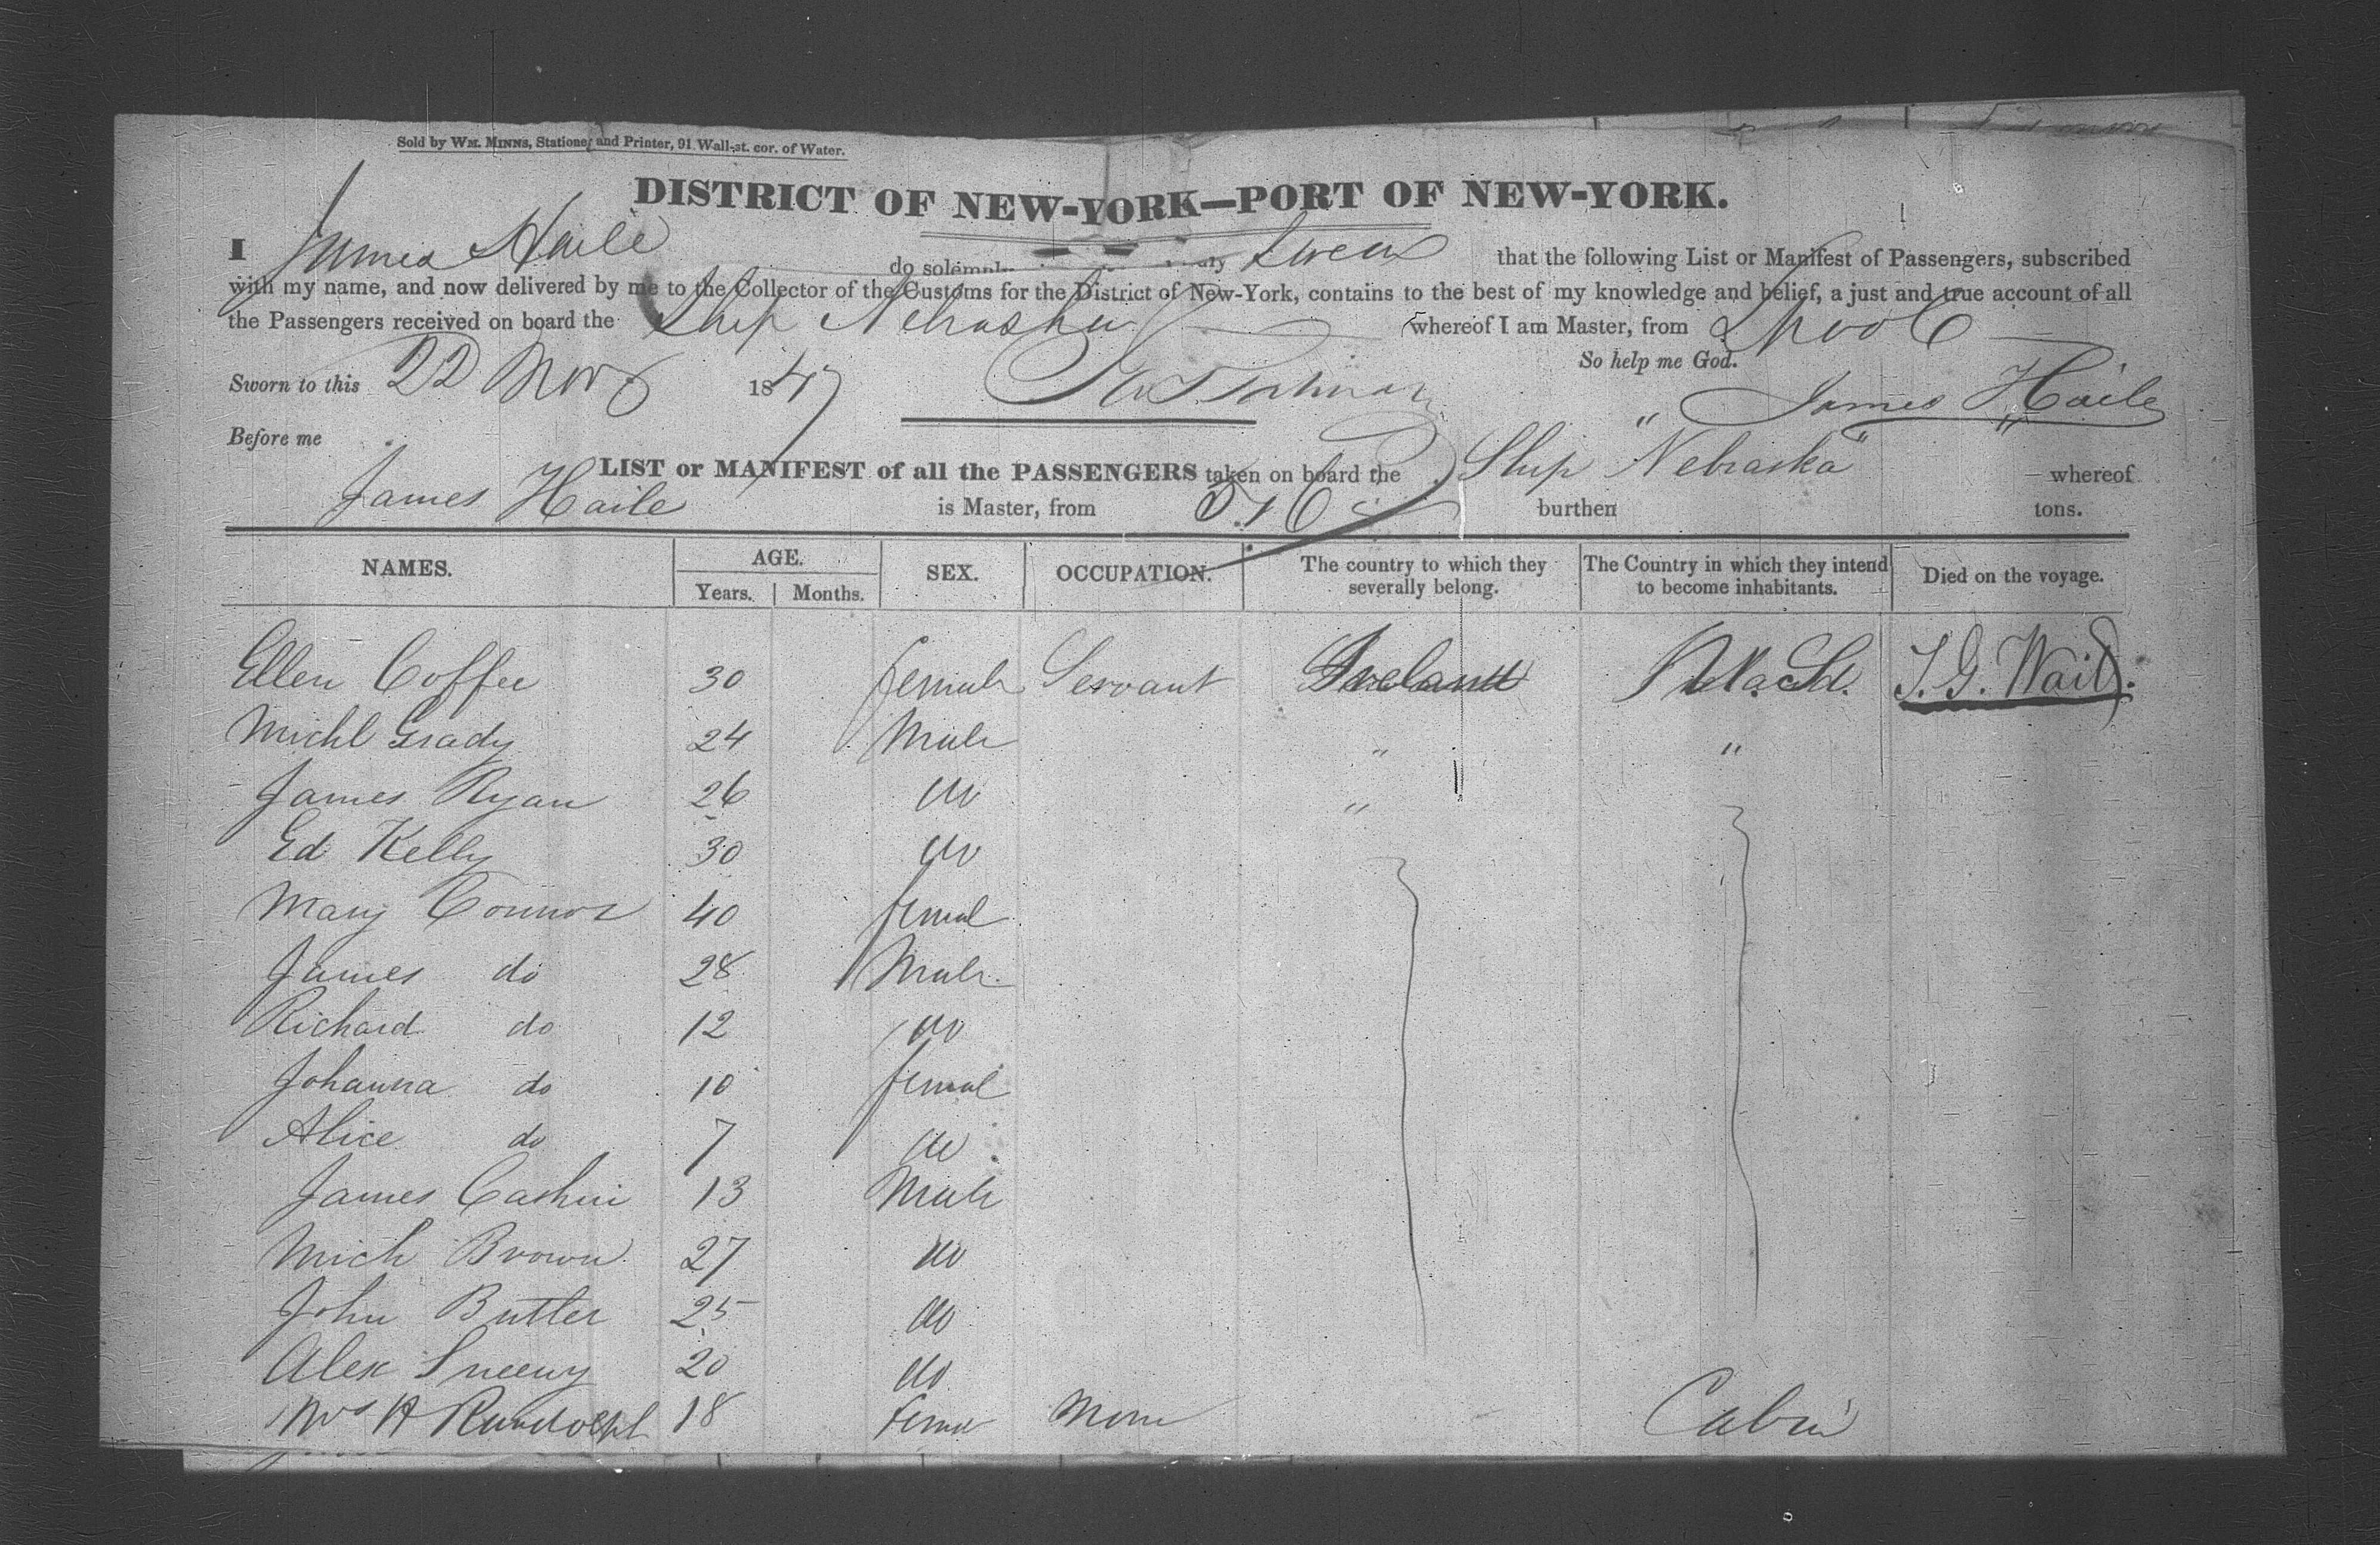 Sold by WM. MINNS, Stationer and Printer, 91 Wall-st. cor. of Water.
DISTRICT OF NEW-YORK—PORT OF NEW-YORK.
I James Haile do solemnly swear that the following List or Manifest of Passengers, subscribed
with my name, and now delivered by me to the Collector of the Customs for the District of New-York, contains to the best of my knowledge and belief, a just and true account of all
the Passengers received on board the Ship Nebraska whereof I am Master, from Lpool
So help me God.
Sworn to this 22 Nov 1847
James Haile
Before me
LIST or MANIFEST of all the PASSENGERS taken on board the Ship "Nebraska" whereof
James Haile is Master, from burthen tons.
NAMES. AGE. Years. Months. SEX. OCCUPATION. The country to which they severally belong. The Country in which they intend to become inhabitants. Died on the voyage.
Ellen Coffee 30 female Servant Ireland
Michl Grady 24 Male " "
James Ryan 26 do "
Ed Kelly 30 do
Mary Connor 40 femal
James do 28 Male
Richard do 12 do
Johanna do 10 femal
Alice do 7 do
James Cashin 13 Male
Mich Brown 27 do
John Butler 25 do
Alex Sneeny 20 do
Mrs A Randolph 18 Female Cabin